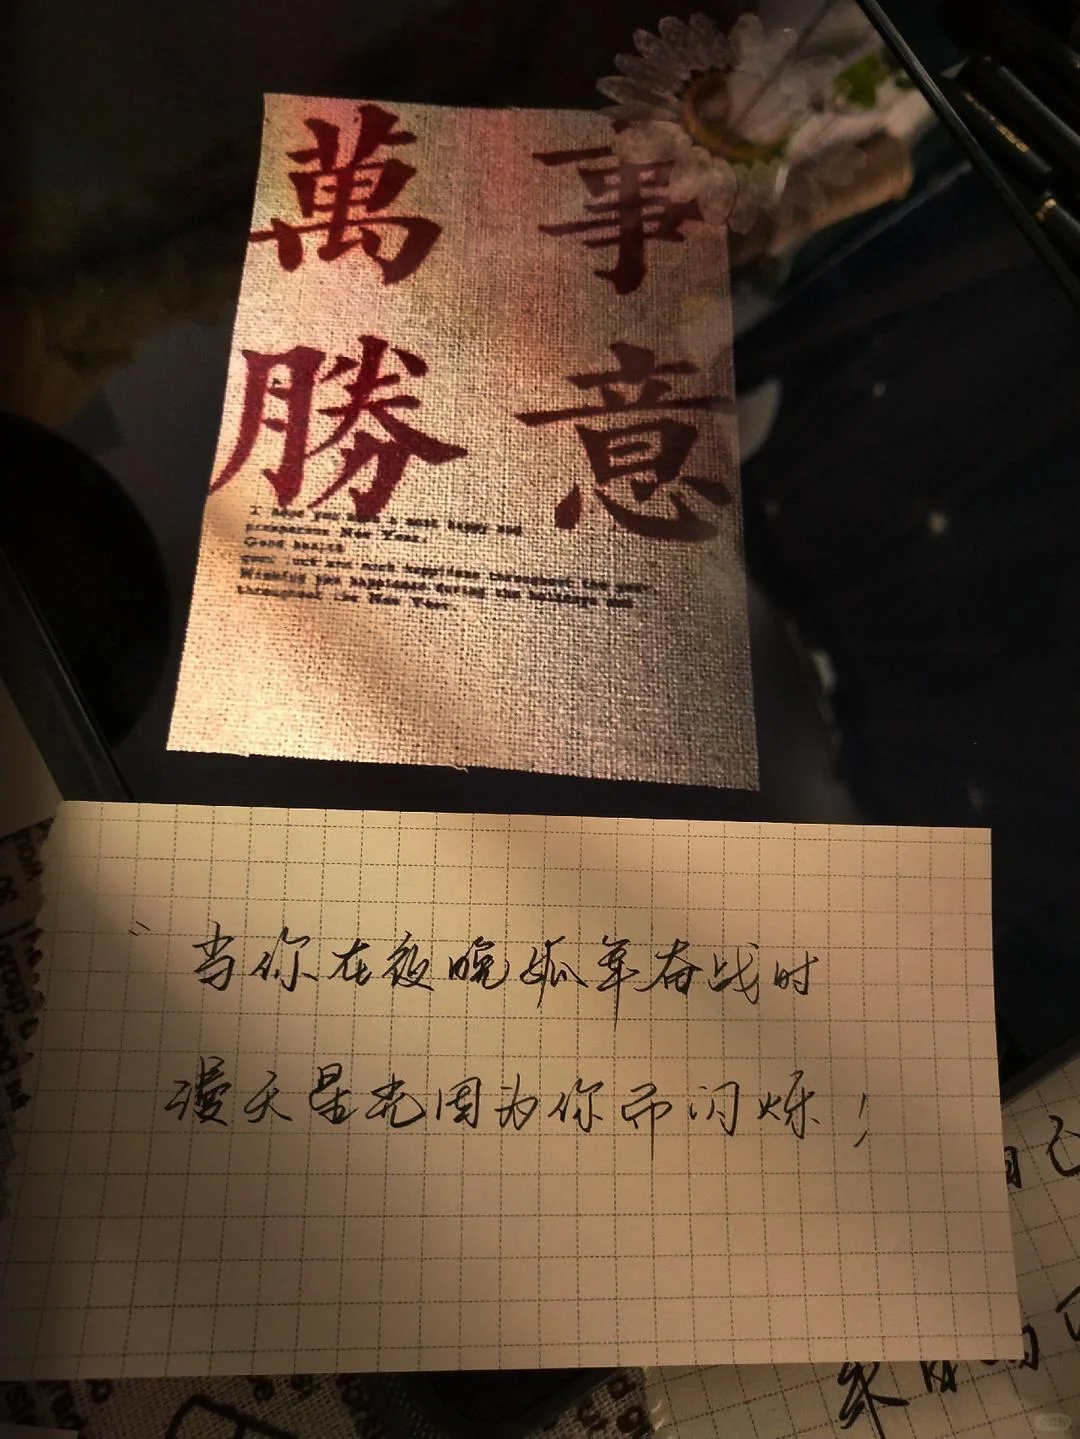 萬事
勝意
I hope you have a most happy and
prosperous New Year.
Good health
good luck and much happiness throughout the year.
Wishing you happiness during the holidays and
throughout the New Year.
"当你在夜晚孤军奋战时
漫天星光因为你而闪烁!
自己